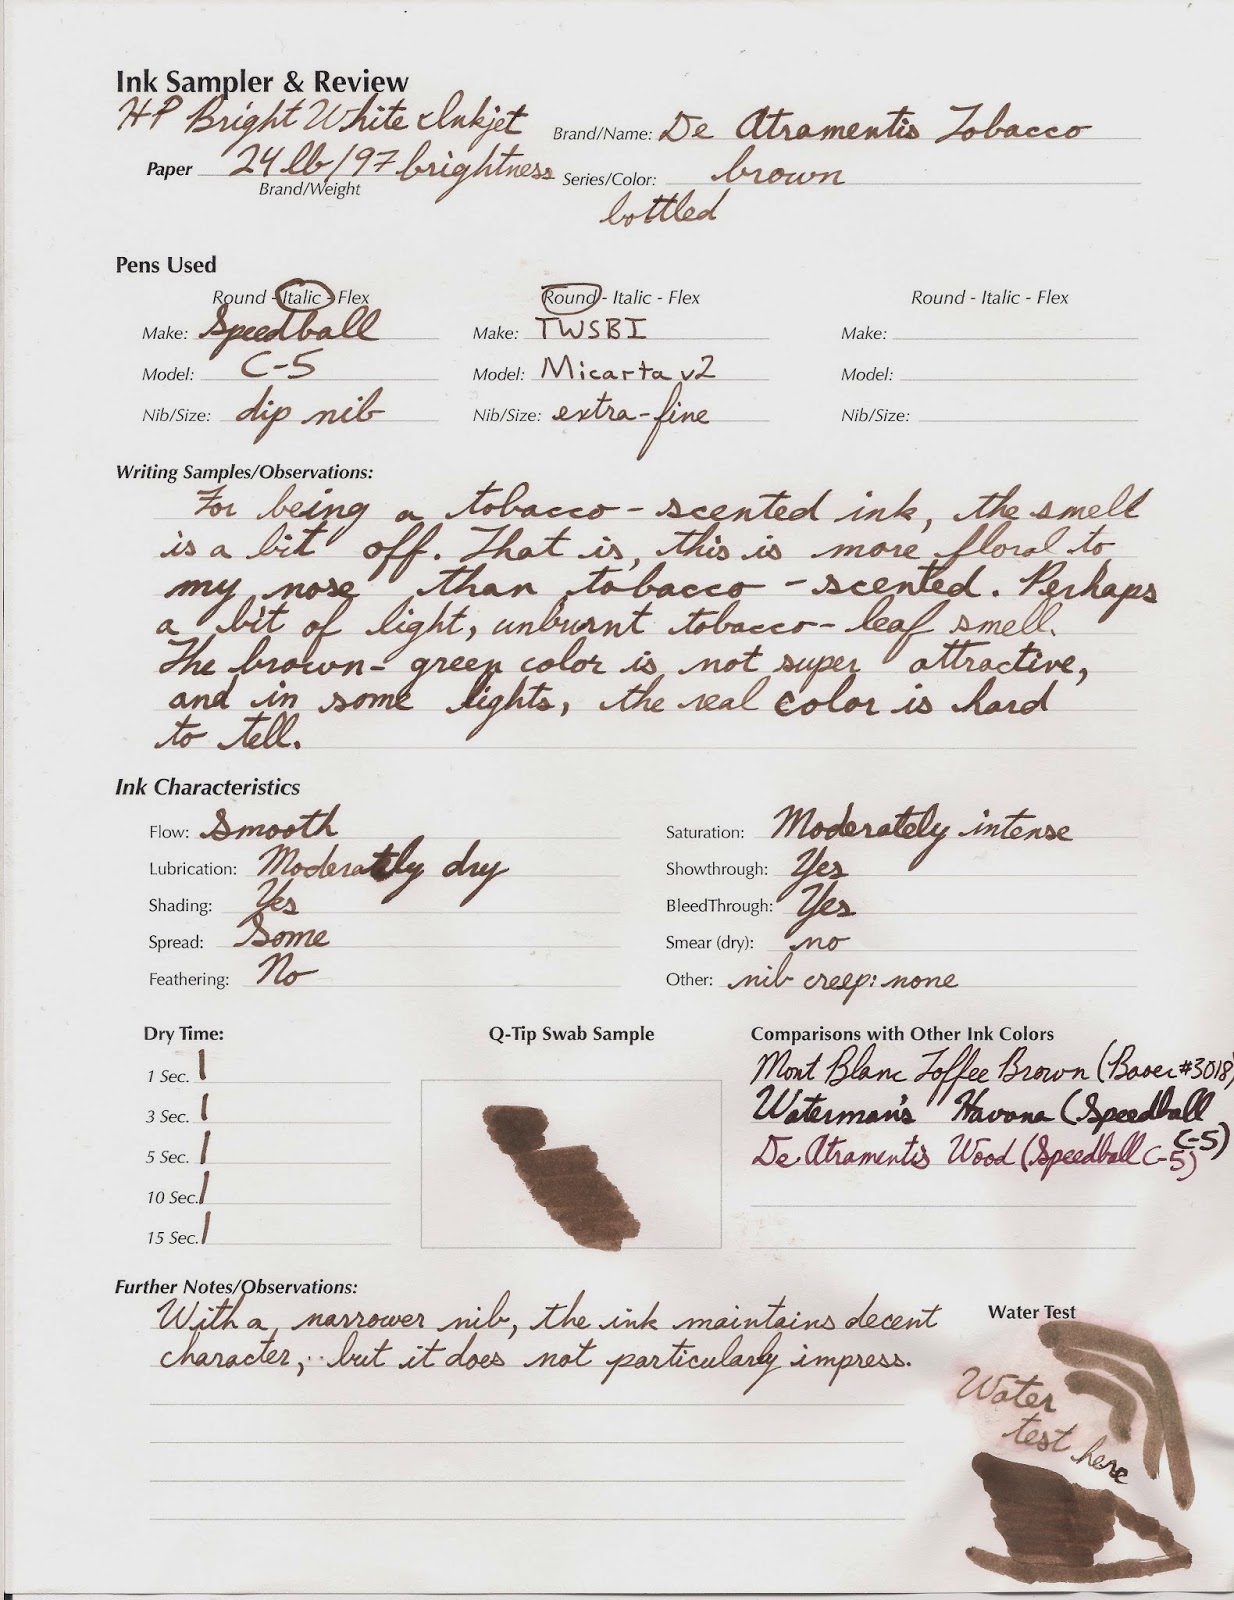 Ink Sampler & Review
HP Bright White Inkjet
Brand/Name: De Atramentis Tobacco
Paper 24 lb/97 brightness
Series/Color: brown
Brand/Weight
bottled
Pens Used
Round - Italic - Flex
Round - Italic - Flex
Round - Italic - Flex
Make: Speedball
Make: TWSBI
Make:
Model: C-5
Model: Micarta v2
Model:
Nib/Size: dip nib
Nib/Size: extra-fine
Nib/Size:
Writing Samples/Observations:
For being a tobacco-scented ink, the smell
is a bit off. That is, this is more floral to
my nose than tobacco-scented. Perhaps
a bit of light, unburnt tobacco-leaf smell.
The brown-green color is not super attractive,
and in some lights, the real color is hard
to tell.
Ink Characteristics
Flow: Smooth
Saturation: Moderately intense
Lubrication: Moderately dry
Showthrough: Yes
Shading: Yes
BleedThrough: Yes
Spread: Some
Smear (dry): no
Feathering: No
Other: nib creep: none
Dry Time:
1 Sec.
3 Sec.
5 Sec.
10 Sec.
15 Sec.
Q-Tip Swab Sample
Comparisons with Other Ink Colors
Mont Blanc Toffee Brown ( #3018)
Waterman's Havana (Speedball
C-5)
De Atramentis Wood (Speedball C-5)
Further Notes/Observations:
With a narrower nib, the ink maintains decent
character, but it does not particularly impress.
Water Test
Water
test here